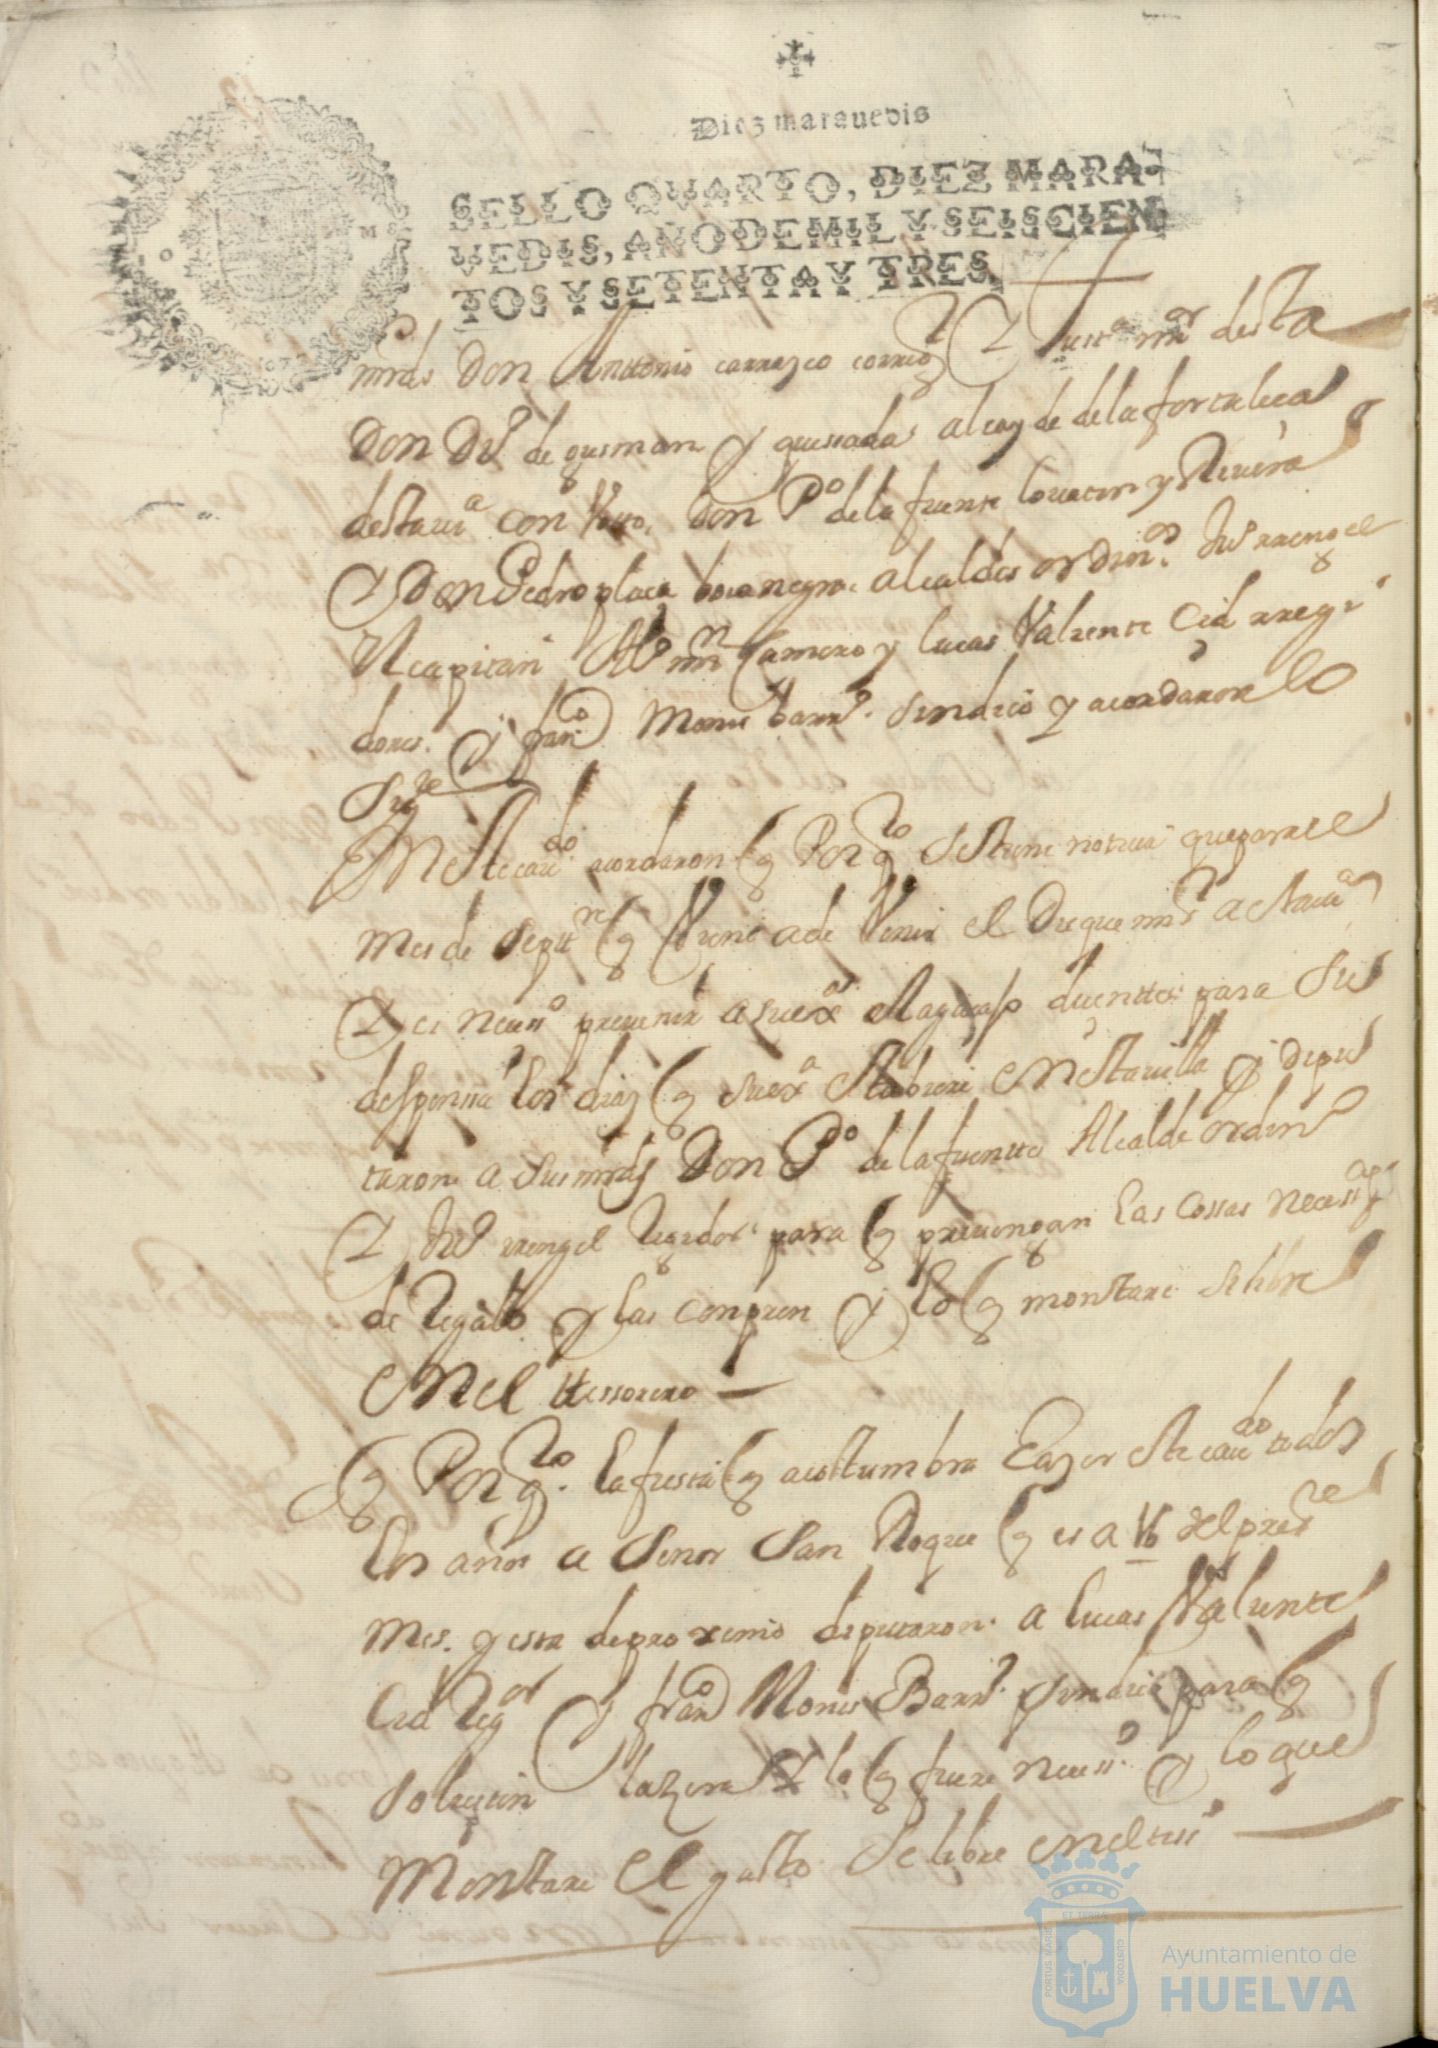 Diez marauedis
SELLO QVARTO, DIEZ MARA-
VEDIS, AÑO DE MIL Y SEISCIEN
TOS Y SETENTA Y TRES
mrds Don Anttonio carrasco corregr Y Justa mr desta
Don Dio de gusman y quessada alcayde de la fortaleca
desta via con Votto, Don Po de la fuente y Riuera
Y Don Pedro plaça bocanegra alcaldes ordinos Juo rrengel
El capitan Alo mn camero y lucas Valiente Cid rregi
dores. Y frano Monis barro. sindico y acordaron lo
Sigte
En Este caudo. acordaron q Por qto se tiene noticia que para el
mes de septtre q Viene a de Venir el Duque mi sr a esta via
Y es necesso preuenir a su exa el agasaxo desentte para su
despensa los dias q su exa estubiere En Esta uilla Y dipu
taron a sus mrds Don Po de la fuentte Alcalde ordino
Y Juo rrengel Regidor para q preuengan las cossas necessas
de Regalo y las conpren Y lo q montare se libre
En el ttessorero
q Por qto. la fiesta q acostumbra hazer este caudo todos
los años a Señor San Roque q es a 16 del presте
mes. y esta de proximo diputaron a lucas Valiente
Cid Regor Y frano Monis Barro. sindico para q
soliciten la zera Y lo q fuere necesso. Y lo que
Montare El gasto se libre en el tesso
PORTUS MARIS ET TERRÆ CUSTODIA
Ayuntamiento de
HUELVA